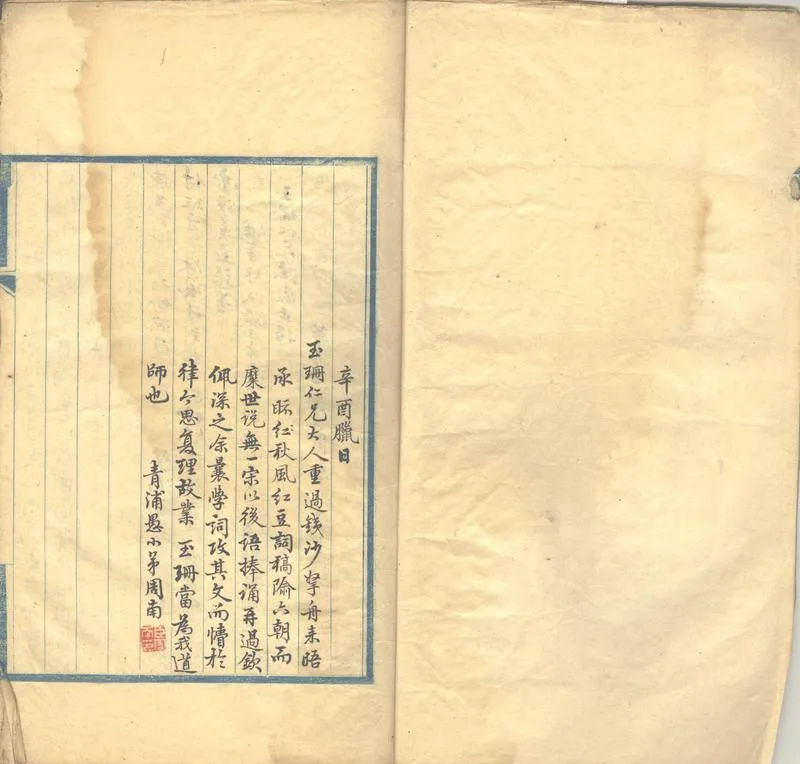 辛酉臘日
玉珊仁兄大人重過錢沙拏舟来晤
承眎秋風紅豆詞稿陯六朝而
糜世說無一宗以後語捧誦再過欽
佩深之余曩學詞攻其文而懵於
律今思复理故業玉珊當為我道
師也
青浦愚小弟周南